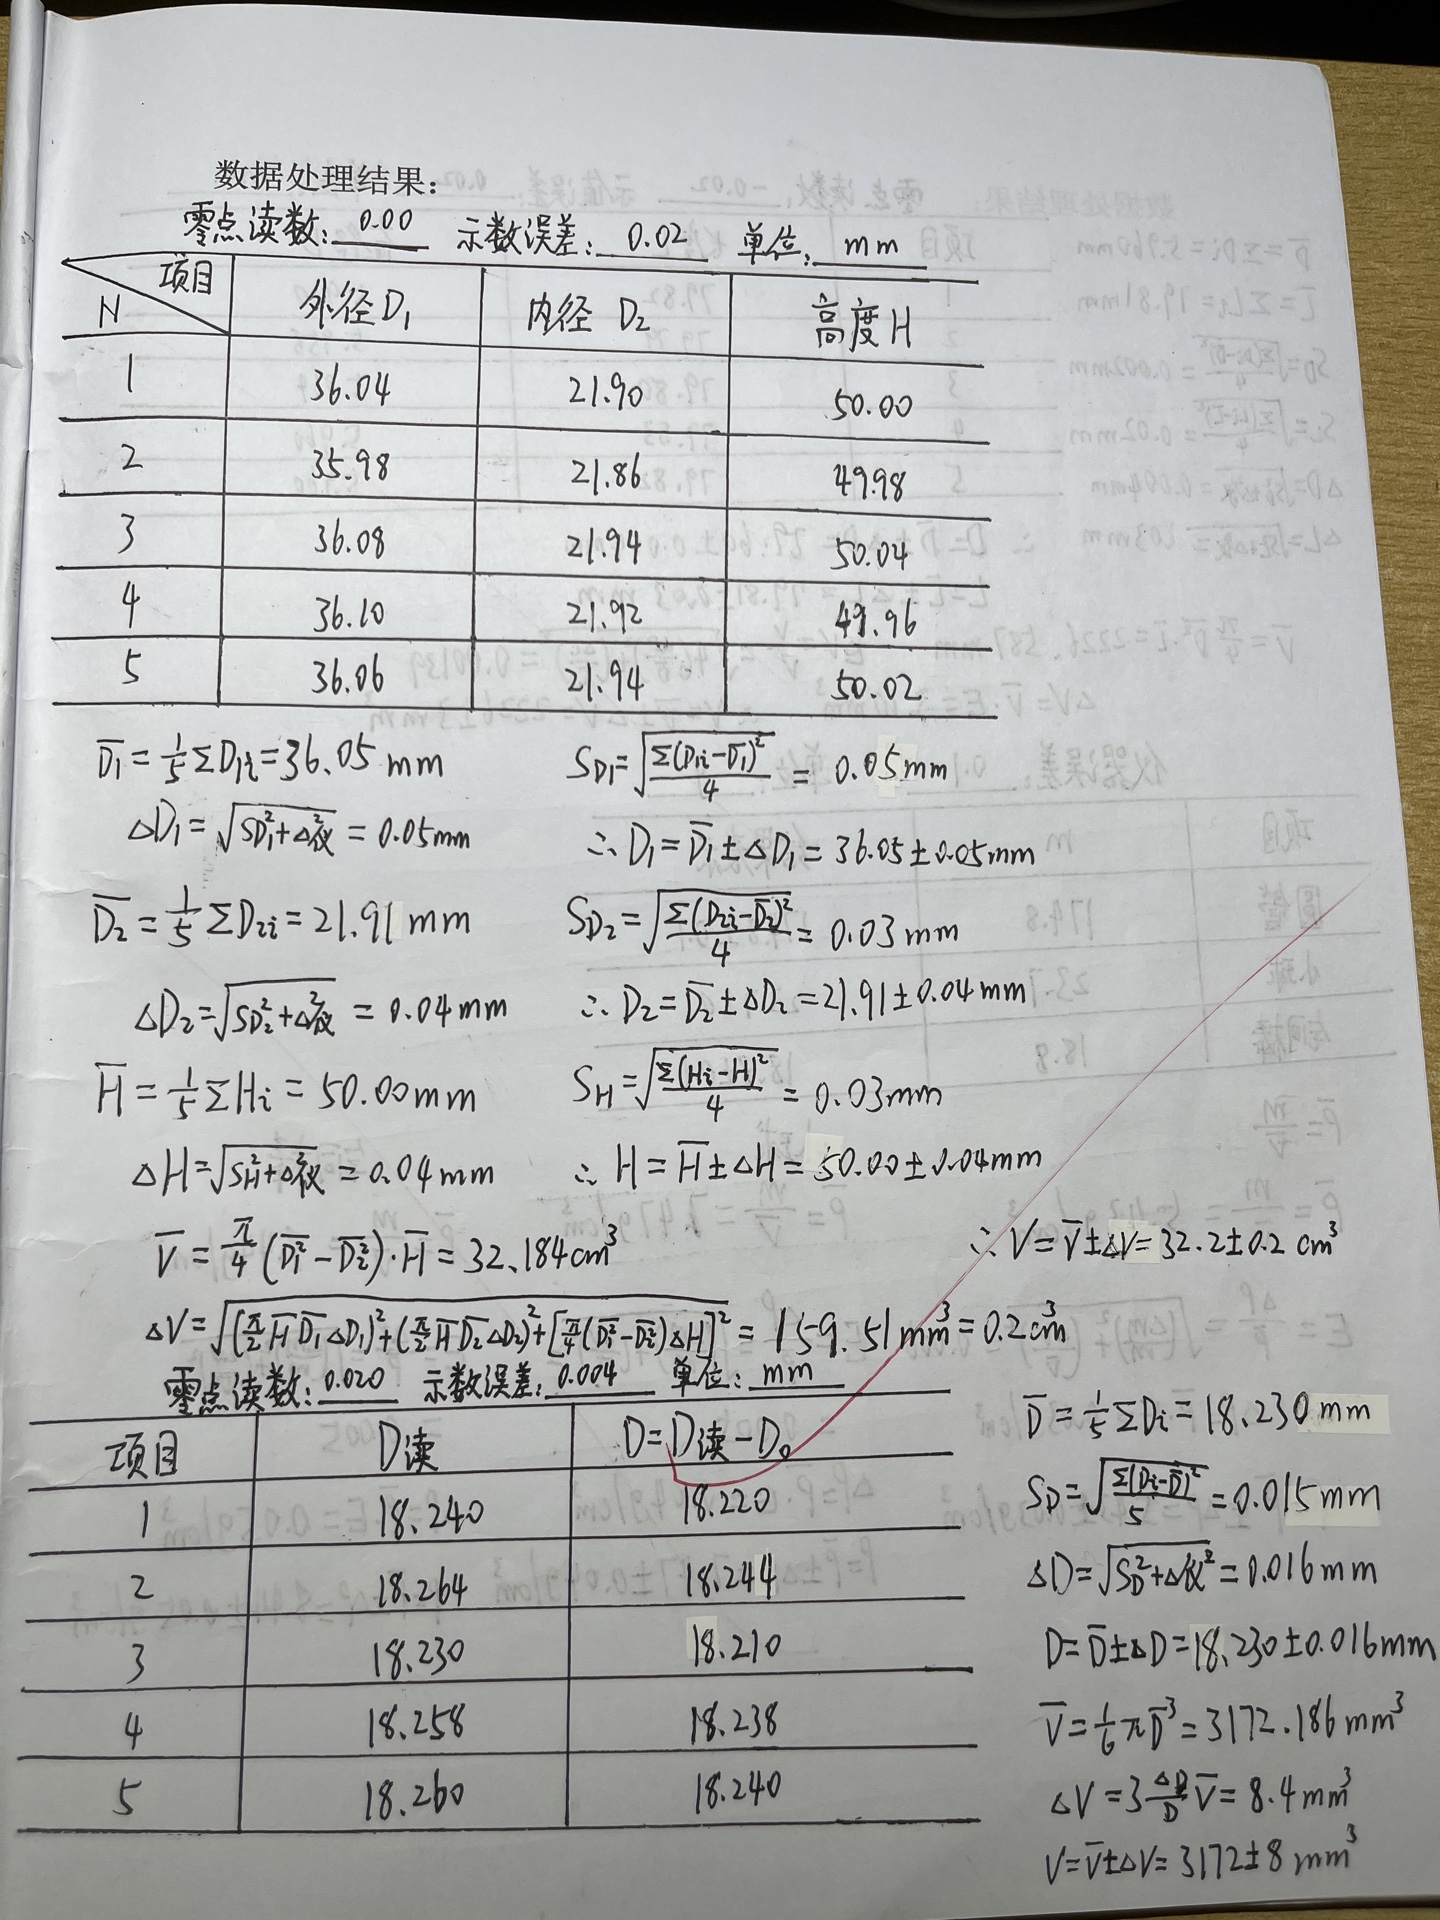 数据处理结果：
零点读数：0.00 示数误差：0.02 单位：mm
项目 N 外径 D₁ 内径 D₂ 高度 H
1 36.04 21.90 50.00
2 35.98 21.86 49.98
3 36.08 21.94 50.04
4 36.10 21.92 49.96
5 36.06 21.94 50.02
D̅₁=1/5 ΣD₁ᵢ=36.05 mm S_D₁=√(Σ(D₁ᵢ-D̅₁)²/4) = 0.05mm
ΔD₁=√(S_D₁²+Δ仪²) = 0.05mm ∴ D₁=D̅₁±ΔD₁=36.05±0.05mm
D̅₂=1/5 ΣD₂ᵢ=21.91mm S_D₂=√(Σ(D₂ᵢ-D̅₂)²/4) = 0.03mm
ΔD₂=√(S_D₂²+Δ仪²) = 0.04mm ∴ D₂=D̅₂±ΔD₂=21.91±0.04mm
H̅=1/5 ΣHᵢ=50.00mm S_H=√(Σ(Hᵢ-H)²/4) = 0.03mm
ΔH=√(S_H²+Δ仪²) = 0.04mm ∴ H=H̅±ΔH=50.00±0.04mm
V̅=π/4(D̅₁²-D̅₂²)·H̅=32.184cm³ ∴ V=V̅±ΔV=32.2±0.2 cm³
ΔV=√((π/2 H̅D̅₁ΔD₁)²+(π/2 H̅D̅₂ΔD₂)²+[π/4(D̅₁²-D̅₂²)ΔH]²) = 159.51mm³=0.2cm³
零点读数：0.020 示数误差：0.004 单位：mm
项目 D读 D=D读-D₀
1 18.240 18.220
2 18.264 18.244
3 18.230 18.210
4 18.258 18.238
5 18.260 18.240
D̅=1/5 ΣDᵢ=18.230mm
S_D=√(Σ(Dᵢ-D̅)²/5)=0.015mm
ΔD=√(S_D²+Δ仪²)=0.016mm
D=D̅±ΔD=18.230±0.016mm
V̅=1/6 πD̅³=3172.186mm³
ΔV=3 ΔD/D V̅=8.4mm³
V=V̅±ΔV=3172±8mm³